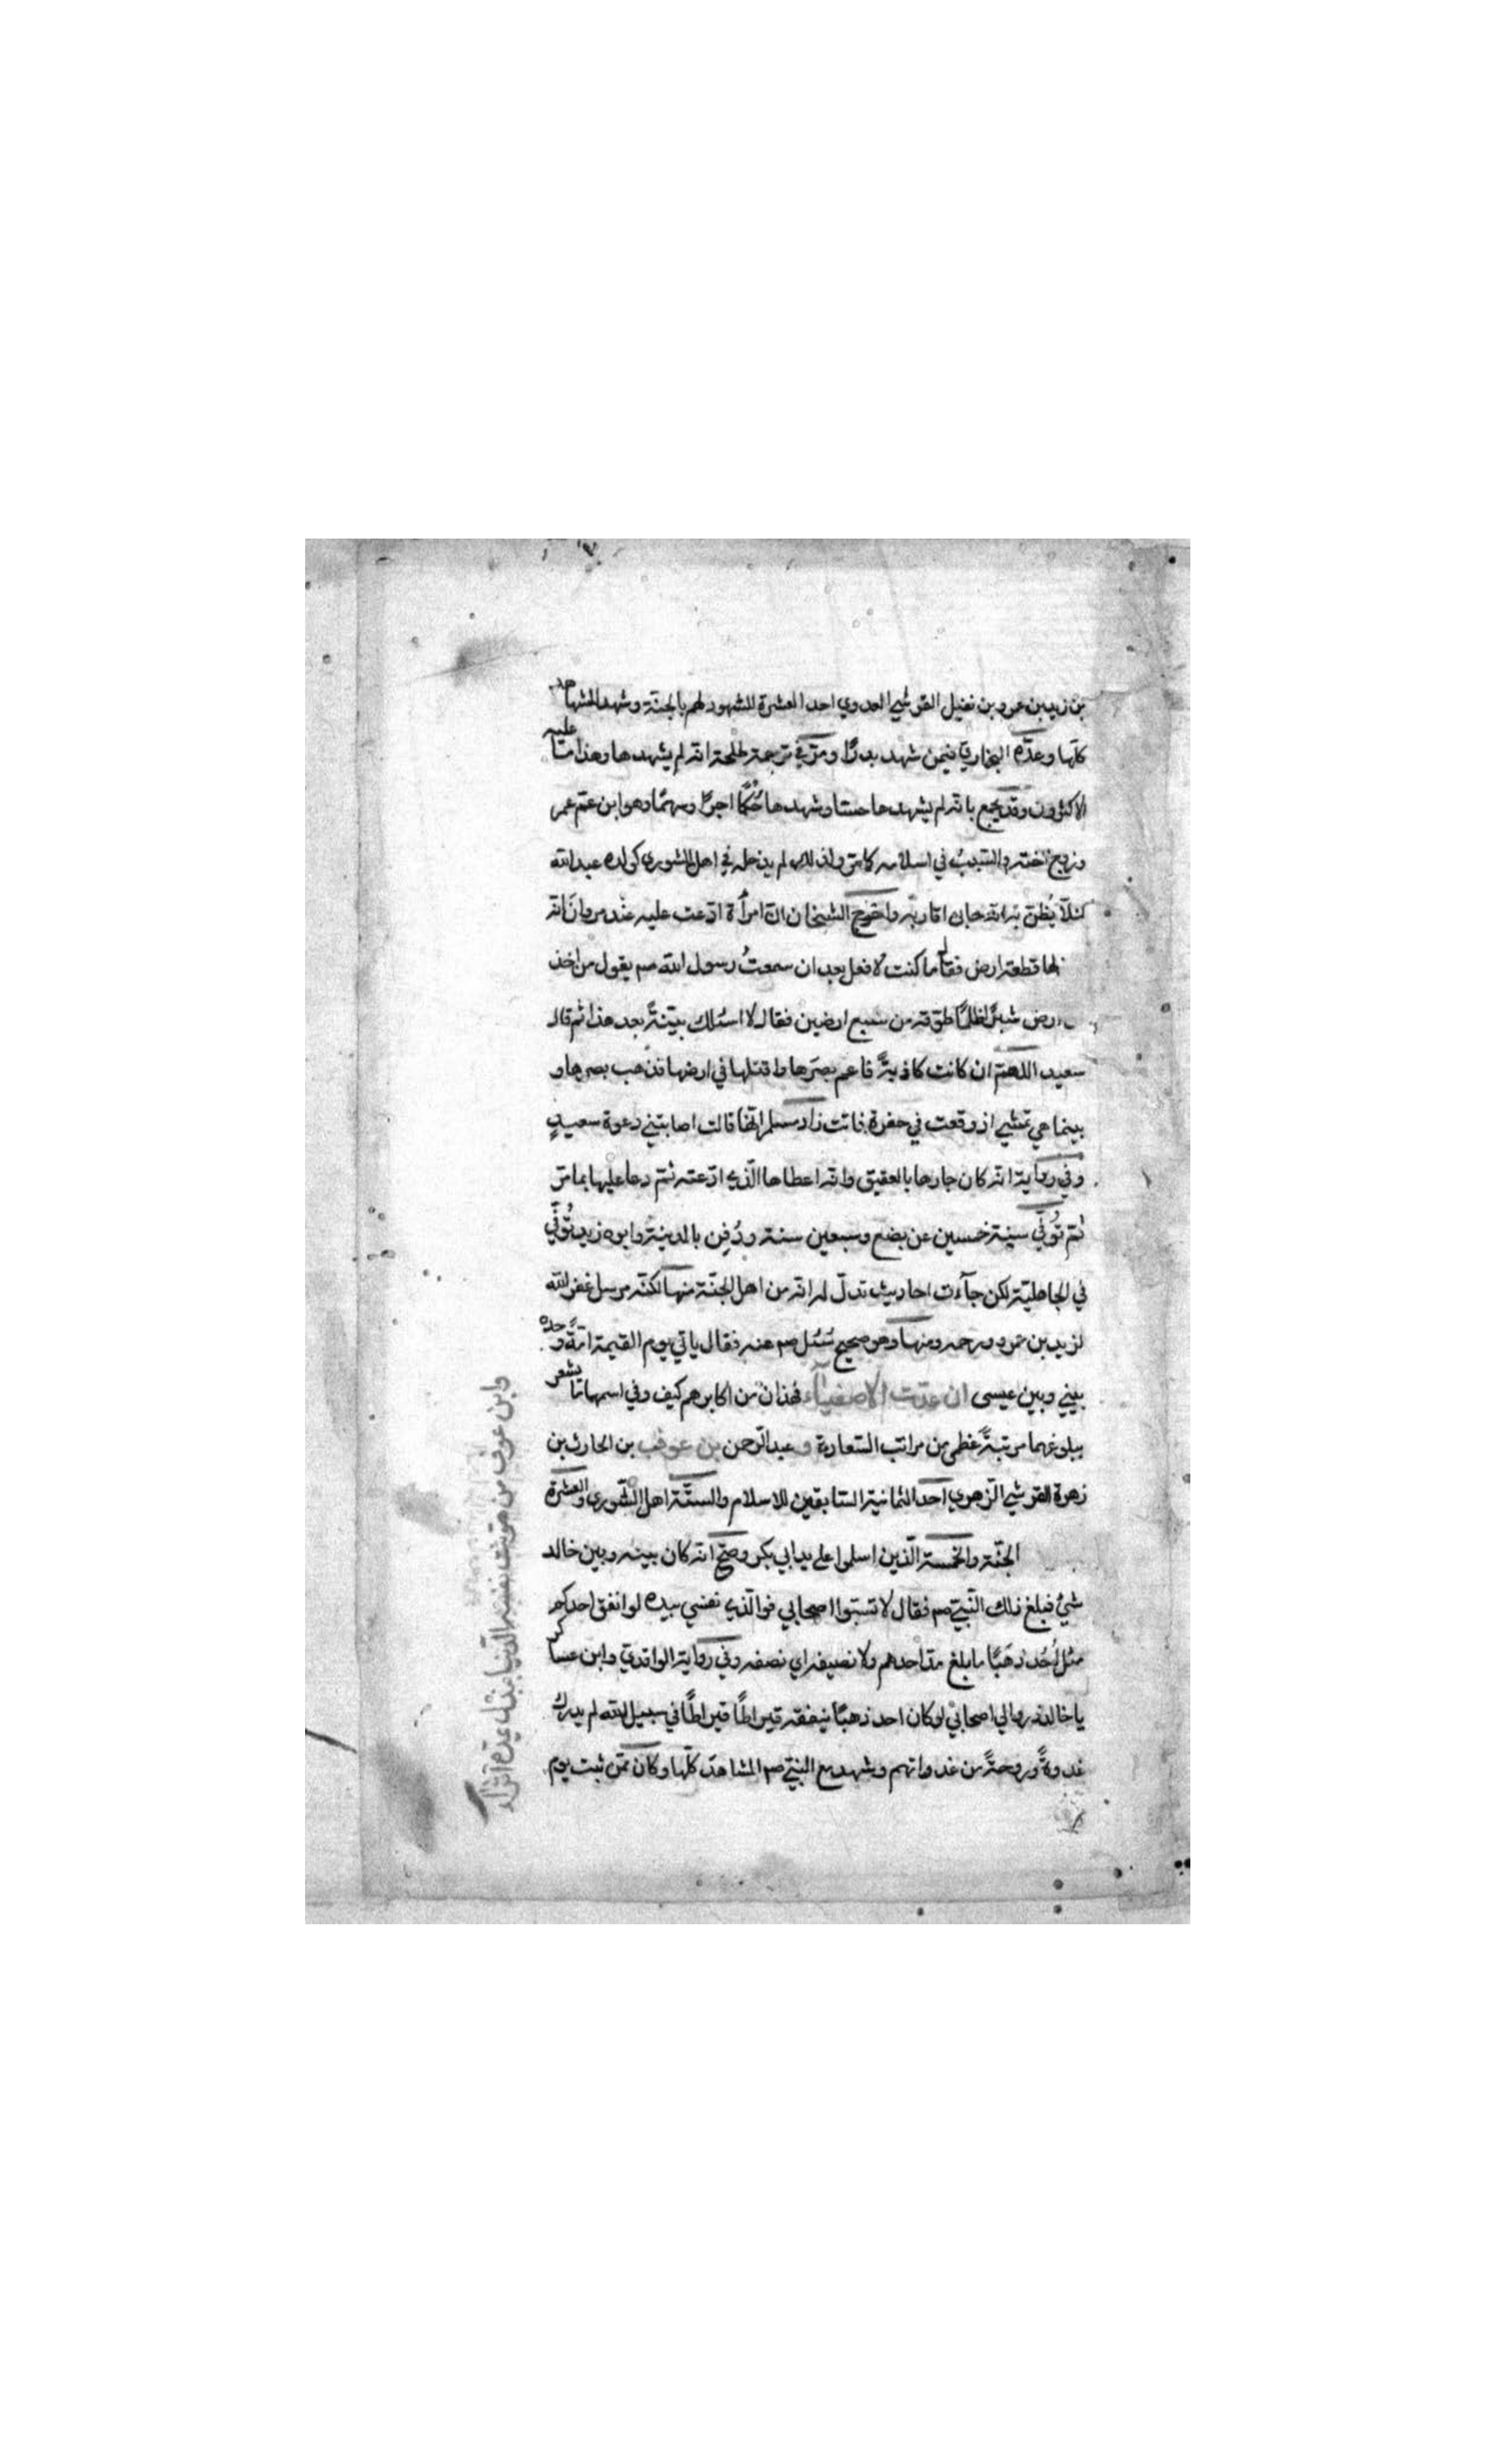 بن زيد بن عمرو بن نفيل القرشي العدوي احد العشرة المشهود لهم بالجنة وشهد المشاهد
كلها وعدّه البخاري فيمن شهد بدرًا ومرّ في ترجمة طلحة انه لم يشهدها وهذا ما عليه
الاكثرون وقد يجمع بانه لم يشهدها حسا وشهدها حُكمًا اجرًا وسهمًا وهو ابن عم عمر
وزوج اخته والسبب في اسلامه كما مرّ ولذلك لم يدخله في اهل الشورى كولده عبدالله
لئلا يُظنّ به انه حابى اقاربه واخرج الشيخان انّ امرأة ادّعت عليه عند مروان انه
لها قطعة ارض فقال ما كنت لافعل بعد ان سمعتُ رسول الله صم يقول من اخذ
ارض شبرًا ظلمًا طوّقه من سبع ارضين فقال لا اسئلك بيّنةً بعد هذا ثم قال
سعيد اللهمّ ان كانت كاذبةً فاعم بصرَها واقتلها في ارضها فذهب بصرها و
بينما هي تمشي اذ وقعت في حفرة فماتت زاد مسلم انّها قالت اصابتني دعوة سعيدٍ
وفي رواية انه كان جارها بالعقيق وانه اعطاها الّذي ادّعته ثم دعا عليها بما مرّ
ثم تُوفّي سنة خمسين عن بضع وسبعين سنة ودُفِن بالمدينة وابوه زيد تُوُفّي
في الجاهليّة لكن جآءت احاديث تدلّ له انه من اهل الجنّة منها لكنّه مرسل غفر الله
لزيد بن عمرو ورحمه ومنها وهو صحيح سُئل صم عنه فقال ياتي يوم القيمة امّةً وحده
بيني وبين عيسى ان عدّت الاصفيآء فهذان من اكابرهم كيف وفي اسمهما ما يشعر
ببلوغهما مرتبةً عظمى من مراتب السّعادة و عبدالرّحمن بن عوف بن الحارث بن
زهرة القرشي الزهري احد الثمانية السّابقين للاسلام والستّة اهل الشّورى والعشرة
الجنّة والخمسة الّذين اسلموا على يد ابي بكر وصحّ انه كان بينه وبين خالد
شيءٌ فبلغ ذلك النبيّ صم فقال لا تسبّوا اصحابي فوالّذي نفسي بيده لو انفق احدكم
مثل اُحُد ذهبًا ما بلغ مدّ احدهم ولا نصيفه اي نصفه وفي رواية الواقديّ وابن عساكر
يا خالد ذروا لي اصحابي لو كان احد ذهبًا ينفقه قيراطًا قيراطًا في سبيل الله لم يدرك
غدوةً وروحةً من غدواتهم وشهد مع النبيّ صم المشاهد كلّها وكان ممّن ثبت يوم
وابن عوف من هوّنت نفسه الدّنيا ببذل يمدّه اثرآء